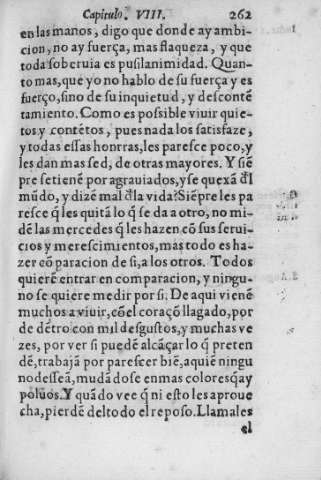 Capitulo. VIII. 262
en las manos, digo que donde ay ambi-
cion, no ay fuerça, mas flaqueza, y que
toda soberuia es pusilanimidad. Quan-
to mas, que yo no hablo de su fuerça y es
fuerço, sino de su inquietud, y descontẽ
tamiento. Como es possible viuir quie-
tos y contẽtos, pues nada los satisfaze,
y todas essas honrras, les paresce poco, y
les dan mas sed, de otras mayores. Y siẽ
pre se tienẽ por agrauiados, y se quexã đl
mũdo, y dizẽ mal đ la vida? Siẽpre les pa
resce q̃ les quitã lo q̃ se da a otro, no mi-
dẽ las mercedes q̃ les hazen cõ sus serui-
cios y merescimientos, mas todo es ha-
zer cõparacion de si, a los otros. Todos
quierẽ entrar en comparacion, y ningu-
no se quiere medir por si. De aqui vienẽ
muchos a viuir, cõ el coraçõ llagado, por
de dẽtro con mil desgustos, y muchas ve
zes, por ver si puedẽ alcãçar lo q̃ preten
dẽ, trabajã por parescer biẽ, a quiẽ ningu
no desseã, mudãdose en mas colores q̃ ay
poluos. Y quãdo vee q̃ ni esto les aproue
cha, pierdẽ del todo el reposo. Llamales
el